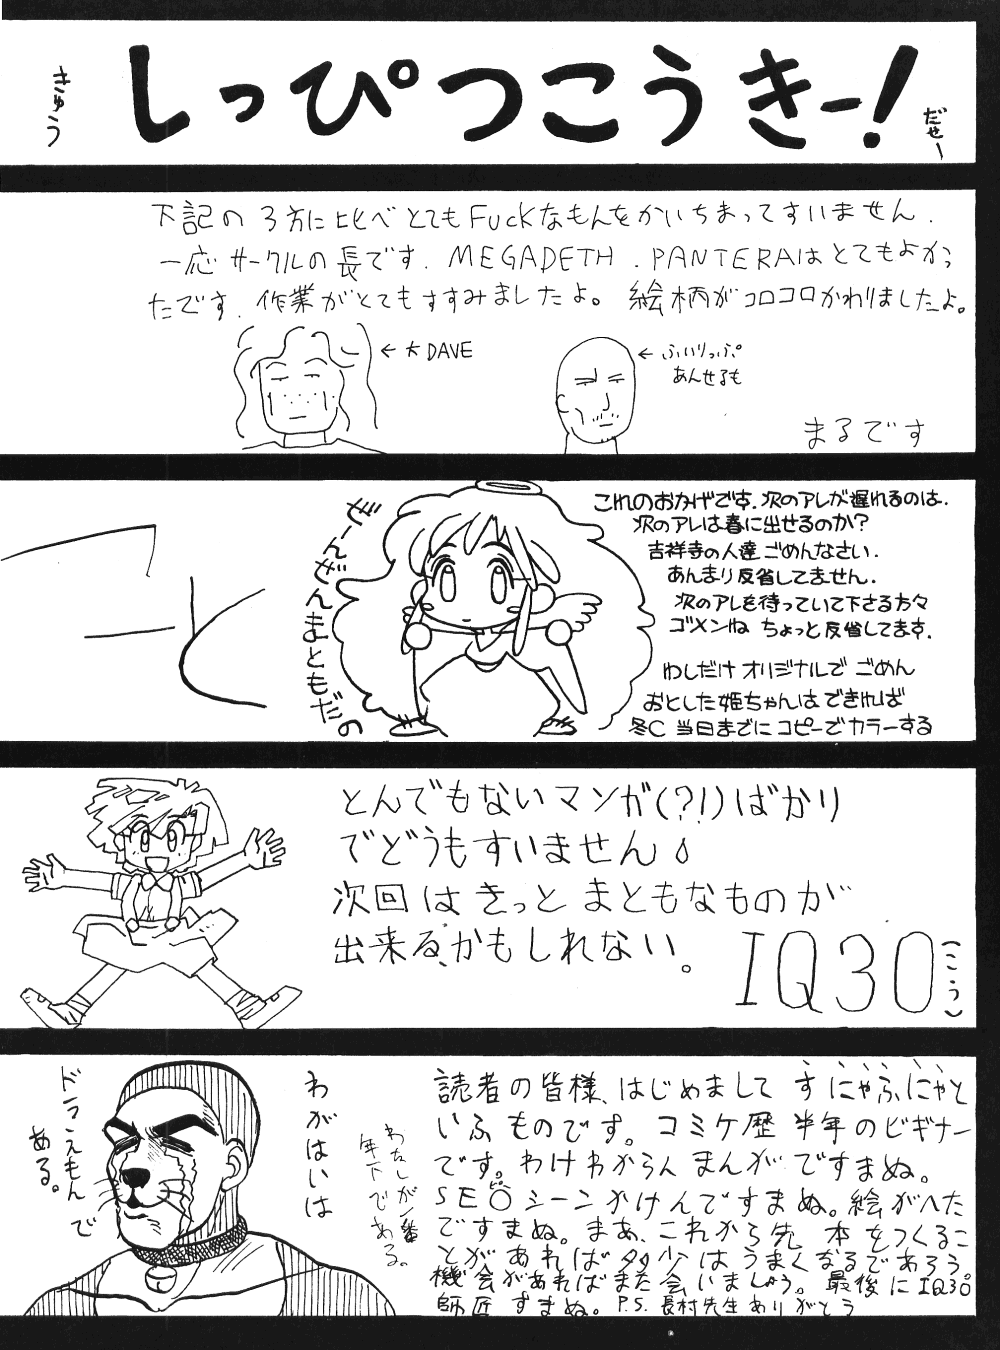 きゅう
しっぴつこうきー!
だせー
下記の3方に比べとてもFuckなもんをかいちまってすいません.
一応サークルの長です. MEGADETH. PANTERAはとてもよかっ
たです. 作業がとてもすすみましたよ。 絵柄がコロコロかわりましたよ。
← 大DAVE
← ふぃりっぷ°
あんせるも
まるです
ぜーんぜんまともだの
これのおかげです. 次のアレが遅れるのは.
次のアレは春に出せるのか?
吉祥寺の人達ごめんなさい.
あんまり反省してません.
次のアレを待っていて下さる方々
ゴメンね ちょっと反省してます.
わしだけオリジナルで ごめん
おとした姫ちゃんは できれば
冬C 当日までにコピーでカラーする
とんでもないマンガ(?!)ばかり
でどうもすいません
次回はきっと まともなものが
出来る、かもしれない。
IQ30(こう)
わがはいは
ドラえもんで
ある。
わたしが1番
年下である。
読者の皆様、はじめまして すにゃふにゃと
いふものです。コミケ歴 半年のビギナー
です。わけわからん まんが ですまぬ。
シーンかけんですまぬ。絵がへた
ですまぬ。まあ、これから先 本をつくるこ
とがあれば 多少はうまくなるであろう。
機会があればまた会いましょう。 最後にIQ30
師匠 すまぬ。 P.S. 長村先生ありがとう